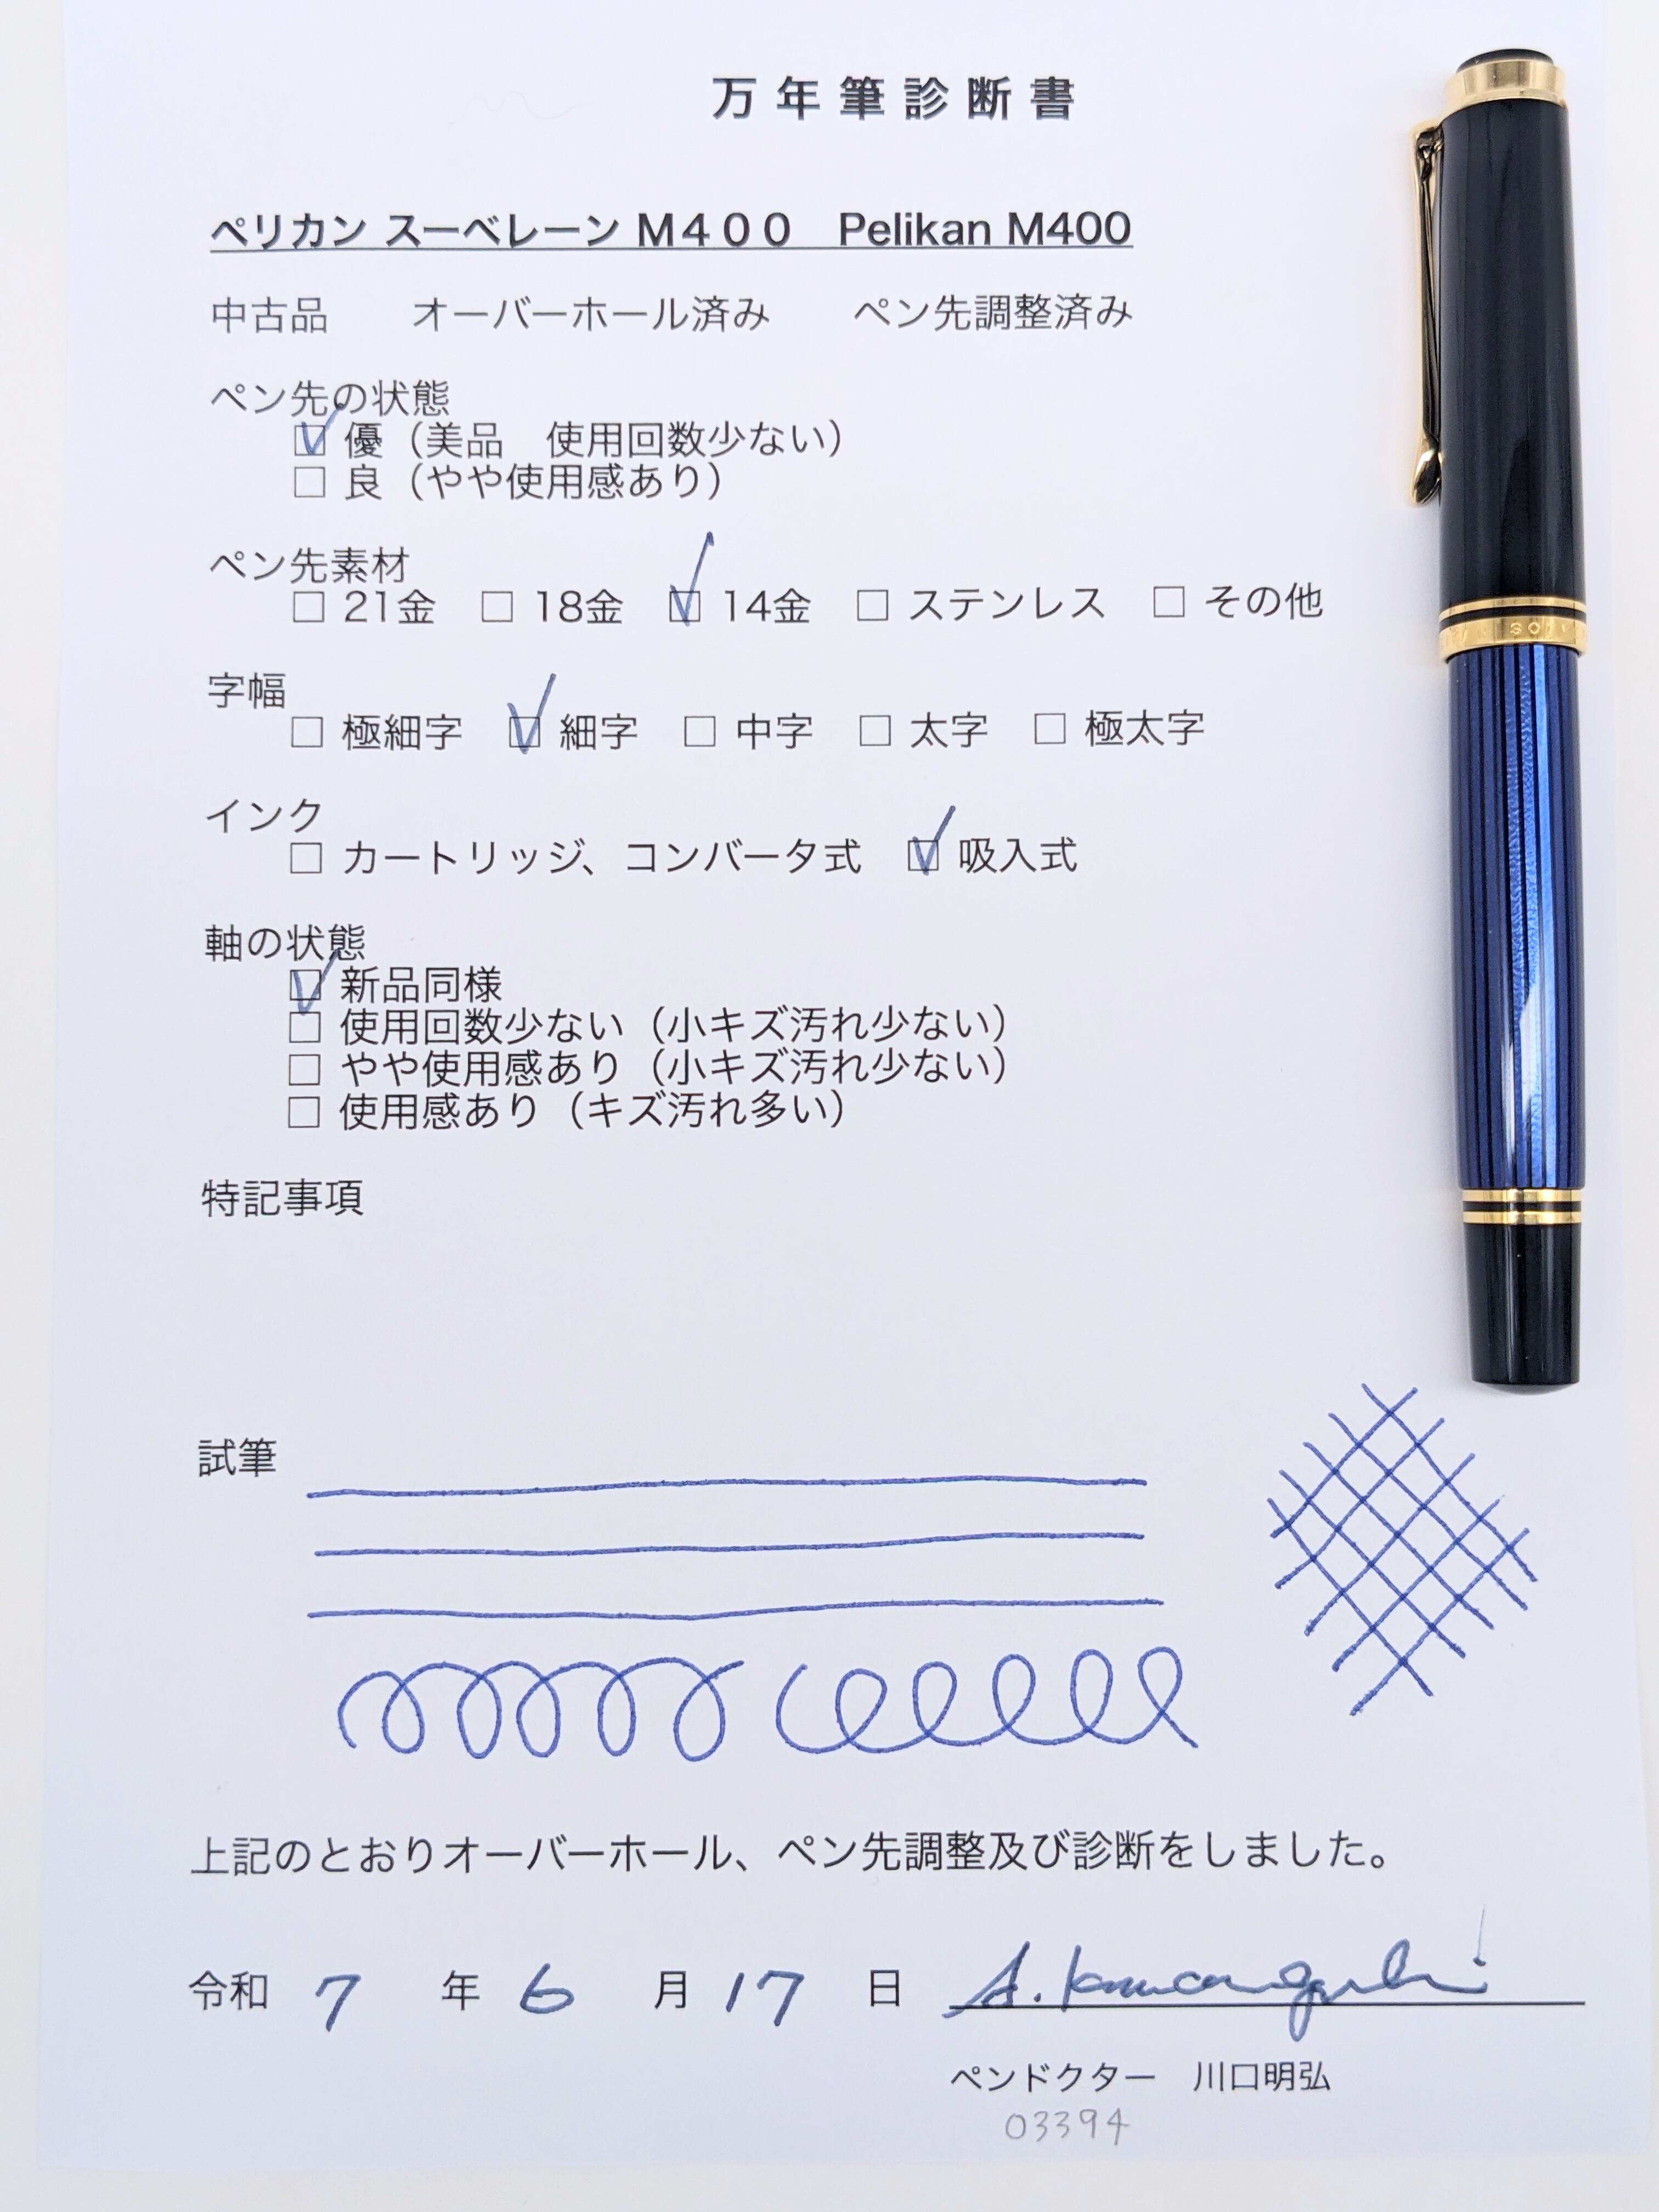 万年筆診断書
ペリカン スーベレーン M400　Pelikan M400
中古品　　オーバーホール済み　　ペン先調整済み
ペン先の状態
☑ 優（美品　使用回数少ない）
□ 良（やや使用感あり）
ペン先素材
□ 21金　□ 18金　☑ 14金　□ ステンレス　□ その他
字幅
□ 極細字　☑ 細字　□ 中字　□ 太字　□ 極太字
インク
□ カートリッジ、コンバータ式　☑ 吸入式
軸の状態
☑ 新品同様
□ 使用回数少ない（小キズ汚れ少ない）
□ やや使用感あり（小キズ汚れ少ない）
□ 使用感あり（キズ汚れ多い）
特記事項
試筆
上記のとおりオーバーホール、ペン先調整及び診断をしました。
令和 7 年 6 月 17 日 A. Kawaguchi
ペンドクター　川口明弘
03394